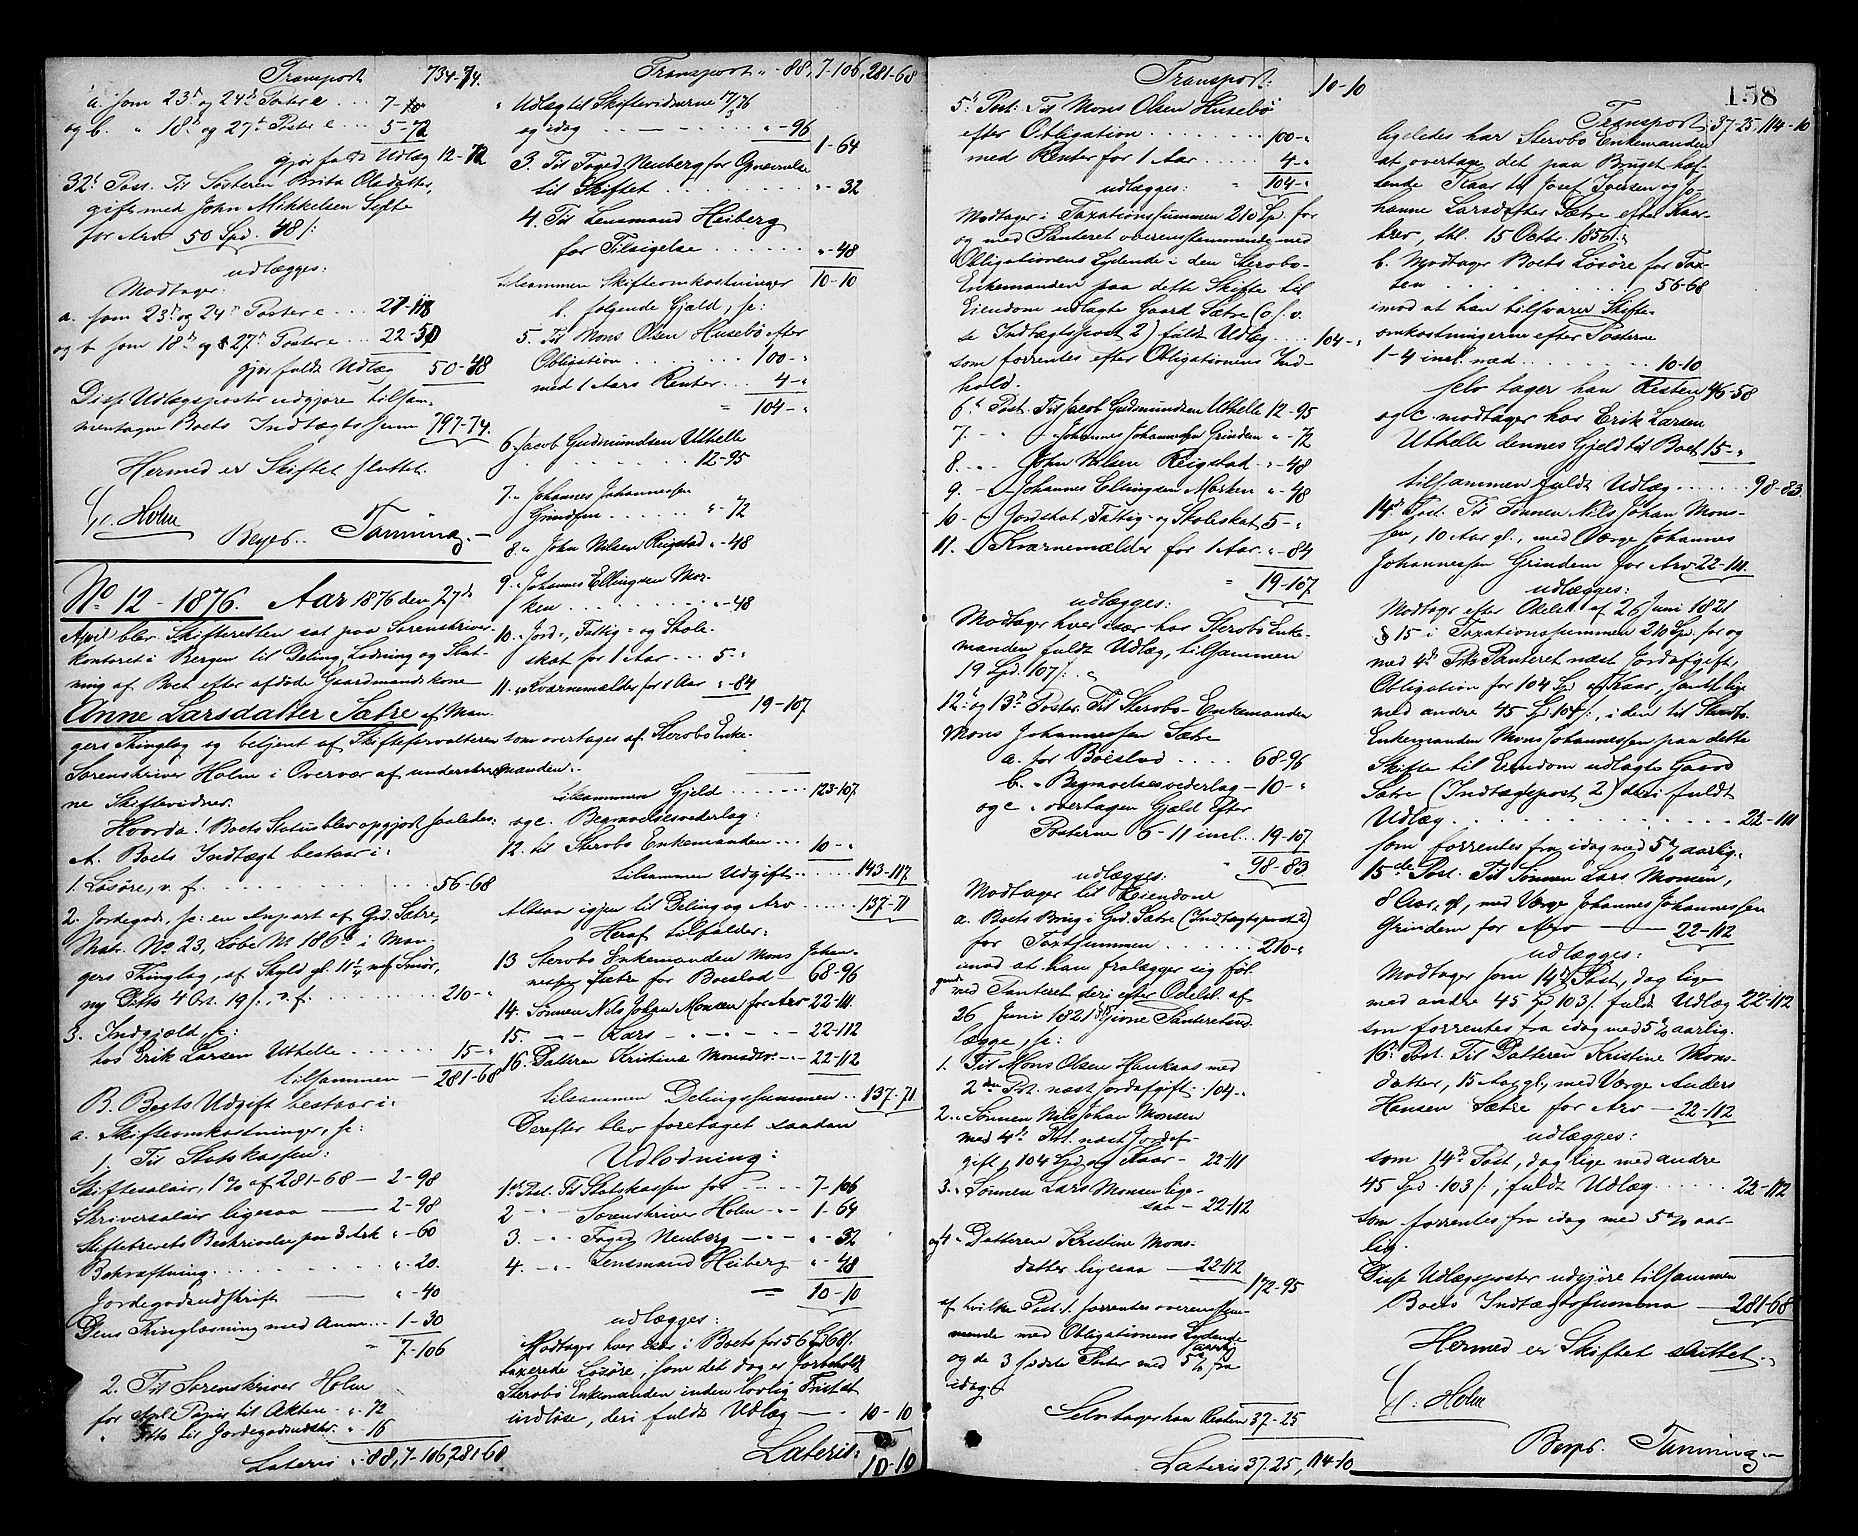 Transport 734-74.
a. som 23d og 24d Poster e ... 7-
og b. " 18d og 27d Poster e ... 5-72
gjør fuldt Udlæg 12-72
32d Post. Til Søsteren Brita Oladatter,
gift med John Mikkelsen Sylte
for Arv 50 Spd. 48 /:
udlægges:
Modtager:
a. som 23d og 24d Poster e ... 27-118
og b som 18d og 27d Poster e ... 22-50
gjør fuldt Udlæg 50-48
Disse Udlægsposter udgjøre tilsam-
mentagne Boets Indtægtssum 797-74.
Hermed er Skiftet sluttet.
Holm
Beyer. Tanning.
No 12 - 1876. Aar 1876 den 27d
April blev Skifteretten sat paa Sorenskriver-
kontoret i Bergen til Deling, Lodning og Slut-
ning af Boet efter afdøde Gaardmandskone
Anne Larsdatter Sætre af Man-
gers Thinglag og betjent af Skifteforvalteren
Sorenskriver Holm i Overvær af underskrev-
ne Skiftevidner.
Hvorda! Boets Status blev opgjort saaledes:
A. Boets Indtægt bestaar i:
1. Løsøre, v. f. ... 56-68
2. Jordegods, /: en Anpart af Gd. Sætre,
Matr. No 23, Løbe No 186b i Man-
gers Thinglag, af Skyld gl. 11 mf Smør,
ny Ditto 4 Ort. 19 /:, v. f. ... 210-"
3. Indgjæld /:
hos Erik Larsen Uthelle ... 15-"
tilsammen - 281-68
B. Boets Udgift bestaar i:
a. Skifteomkostninger, /:
1. Til Statskassen:
Skiftesalair, 1 % af 281-68 - 2-98
Skriversalair ligesaa - 2-98
Skiftebrevets Beskrivelse paa 3 Ark "-60
Bekræftning ... "-20.
Jordegodsudskrift - "-40
Dens Thinglæsning med Anm... 1-30
" 7-106
2. Til Sorenskriver Holm
for stpl. Papir til Akten .. "-72
" Ditto til Jordegodsudskr. "-16
Lateris "-88, 7-106, 281-68
Transport "-88, 7-106, 281-68
" Udlæg til Skiftevidnerne 17/3 76
og idag ... "-96
1-64
3. Til Foged Neuberg for Gjenemelse
til Skiftet ... "-32
4. Til Lensmand Heiberg
for Tilsigelse ... "-48
tilsammen Skifteomkostninger 10-10
b. følgende Gjæld, /:
5. Til Mons Olsen Husebø efter
Obligation ... 100-"
med 1 Aars Renter ... 4-"
" 104-"
6. Jacob Gudmundsen Uthelle
12-95
7. " Johannes Johannessen
Grindem ... "-72
8. " John Nilsen Reigstad "-48
9. " Johannes Ellingsen Mor-
ken ... "-48
10. " Jord-, Fattig- og Skole-
skat for 1 Aar ... 5-"
11. " Kværnemælder for 1 Aar "-84
19-107
som overtages af Sterbo Enke-
manden.
tilsammen Gjeld ... 123-107
og c. Begravelsesvederlag:
12. til Sterbo Enkemanden ... 10-"
tilsammen Udgift ... 143-117
Altsaa igjen til Deling og Arv ... 137-71
Heraf tilfalder:
13 Sterbo Enkemanden Mons Johan-
nessen Sætre for Boeslod 68-96
14. Sønnen Nils Johan Monsen for Arv 22-111
15. " - Lars - " - 22-112
16. Datteren Kristine Monsdtr. - 22-112
tilsammen Delingssummen .. 137-71
Derefter blev foretaget saadan
Udlodning:
1ste Post. Til Statskassen for ... 7-106
2 - " - Sorenskriver Holm " - 1-64
3. - " - Foged Neuberg - " - "-32
4. - " - Lensmand Heiberg "-48
10-10
udlægges:
Modtager hver især i Boets for 56 Spd 68 /:
taxerede Løsøre, som det dog er forbeholdt
Sterbo Enkemanden inden lovlig Frist at
indløse, deri fuldt Udlæg - 10-10
Lateris: 10-10
Transport: 10-10
5d Post. Til Mons Olsen Husebø
efter Obligation ... 100-"
med Renter for 1 Aar ... 4-"
udlægges: " 104-"
Modtager i Taxationssummen 210 Spd. for
og med Panteret overensstemmende med
Obligationens Lydende i den Sterbo-
Enkemanden paa dette Skifte til
Eiendom udlagte Gaard Sætre (o. s. v.
se Indtægtspost 2) fuldt Udlæg ... 104-"
som forrentes efter Obligationens Ind-
hold.
6d Post. Til Jacob Gudmundsen Uthelle 12-95
7. - " - Johannes Johannessen Grindem "-72
8. - " - John Nilsen Reigstad "-48
9. - " - Johannes Ellingsen Morken "-48
10 - " - Jordskat, Fattig- og Skoleskat 5-"
11. - " Kværnemælder for 1 Aar "-84
" 19-107
udlægges:
Modtager hver især hos Sterbo Enke-
manden fuldt Udlæg, tilsammen
19 Spd. 107 /:
12d og 13d Poster. Til Sterbo-Enkemanden
Mons Johannessen Sætre
a. for Boeslod ... 68-96
b. " Begravelsesvederlag - 10-"
og c " overtagen Gjæld efter
Posterne 6-11 incl. .. 19-107
" 98-83
udlægges:
Modtager til Eiendom
a. Boets Brug i Gd. Sætre (Indtægtspost 2)
for Taxtsummen ... 210-"
imod at han fralægger sig føl-
gende med Panteret deri efter Odelsl. af
26 Juni 1821 givne Panteretud-
lægge, /:
1. Til Mons Olsen Haukaas med
2den Pst. næst Jordafgift .. 104-"
2. " Sønnen Nils Johan Monsen
med 4d Pst. næst Jordaf-
gift, 104 Spd og Kaar - 22-111
3. " Sønnen Lars Monsen lige-
saa - 22-112
og 4 " Datteren Kristine Mons-
datter ligesaa - 22-112
172-95
af hvilke Post 1. forrentes overensstem-
mende med Obligationens Lydende
og de 3 sidste Poster med 5 % aarlig fra
idag.
Selv tager han Resten 37-25
Lateris 37-25, 114-10
158
Transport 37-25, 114-10
ligeledes har Sterbo Enkemanden
at overtage det paa Bruget hæf-
tende Kaar til Josef Iversen og Jo-
hanne Larsdatter Sætre efter Kaar-
brev, thl. 15 Octbr. 1856.
b. Modtager Boets Løsøre for Tax-
ten ... 56-68
imod at han tilsvarer Skifte-
omkostningerne efter Posterne
1-4 incl. med ... 10-10
selv tager han Resten 46-58
og c. modtager hos Erik Larsen
Uthelle dennes Gjeld til Boet 15-"
tilsammen fuldt Udlæg ... 98-83.
14d Post. Til Sønnen Nils Johan Mons-
sen, 10 Aar gl., med Værge Johannes
Johannessen Grindem for Arv 22-111.
udlægges:
Modtager efter Odelsl. af 26 Juni 1821
§ 15 i Taxationssummen 210 Spd, for og
med 4d Pts Panteret næst Jordafgift,
Obligation for 104 Spd og Kaar, samt lige
med andre 45 Spd 104 /:, i den til Sterbo-
Enkemanden Mons Johannessen paa dette
Skifte til Eiendom udlagte Gaard
Sætre (Indtægtspost 2) deri fuldt
Udlæg ... 22-111
som forrentes fra idag med 5 % aarlig.
15de Post. Til Sønnen Lars Monsen,
8 Aar gl, med Værge Johannes Johannessen
Grindem for Arv - 22-112
udlægges:
Modtager som 14d Post, dog lige
med andre 45 Spd 103 /: fuldt Udlæg 22-112
som forrentes fra idag med 5 % aarlig.
16d Post. Til Datteren Kristine Mons-
datter, 15 Aar gl., med Værge Anders
Hansen Sætre for Arv - 22-112
udlægges:
som 14d Post, dog lige med andre
45 Spd. 103 /:, fuldt Udlæg ... 22-112
som forrentes fra idag med 5 % aar-
lig.
Disse Udlægsposter udgjøre tilsammen
Boets Indtægtssumma - 281-68
Hermed er Skiftet sluttet.
Holm
Beyer. Tanning.